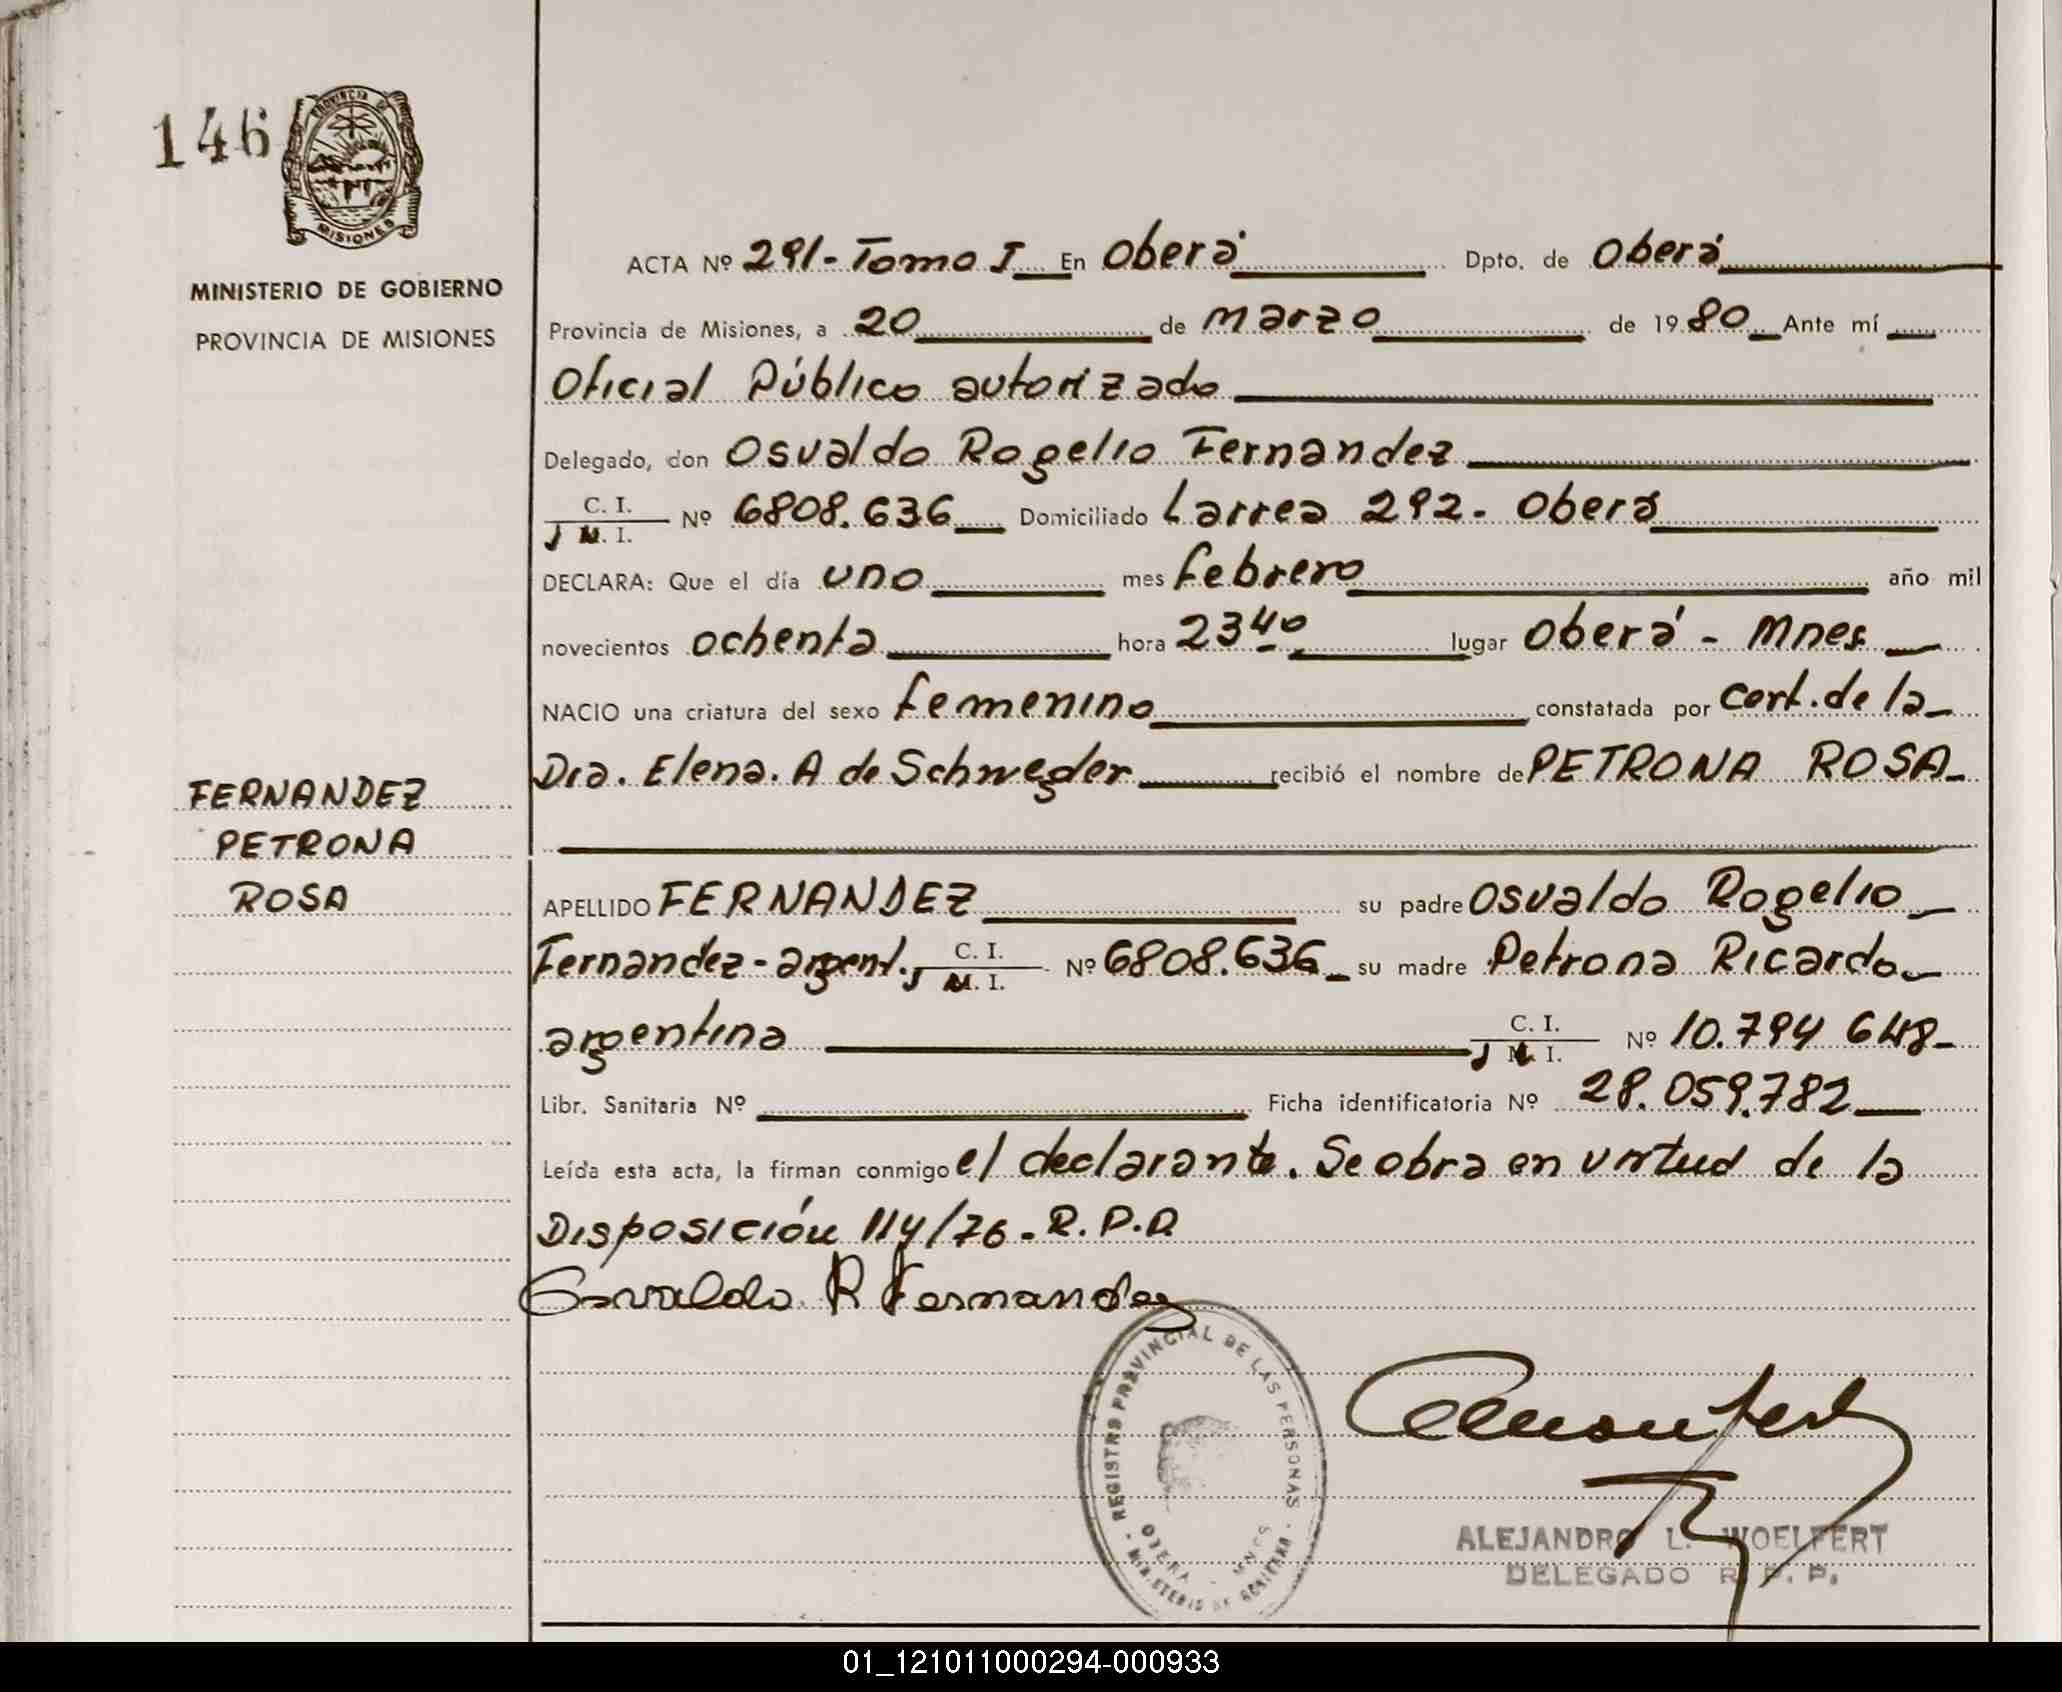 146
PROVINCIA DE
MISIONES
MINISTERIO DE GOBIERNO
PROVINCIA DE MISIONES
FERNANDEZ
PETRONA
ROSA
ACTA Nº 291-Tomo I En Oberá Dpto. de Oberá
Provincia de Misiones, a 20 de marzo de 1980 Ante mí
Oficial Público autorizado
Delegado, don Osvaldo Rogelio Fernandez
C. I.
M. I. Nº 6808.636 Domiciliado Larrea 292. Oberá
DECLARA: Que el día uno mes febrero año mil
novecientos ochenta hora 23 40 lugar Oberá - Mnes
NACIO una criatura del sexo femenino constatada por cert. de la
Dra. Elena. A de Schweger recibió el nombre de PETRONA ROSA
APELLIDO FERNANDEZ su padre Osvaldo Rogelio
Fernandez-argent. C. I.
M. I. Nº 6808.636 su madre Petrona Ricardo
argentina C. I.
M. I. Nº 10.794 648
Libr. Sanitaria Nº Ficha identificatoria Nº 28.059.782
Leída esta acta, la firman conmigo el declarante. Se obra en virtud de la
Disposición 114/76-R.P.P
Osvaldo R Fernandez
REGISTRO PROVINCIAL DE LAS PERSONAS
OBERA - MNES
MINISTERIO DE GOBIERNO
ALEJANDRO L. WOELFERT
DELEGADO R. P. P.
01_121011000294-000933